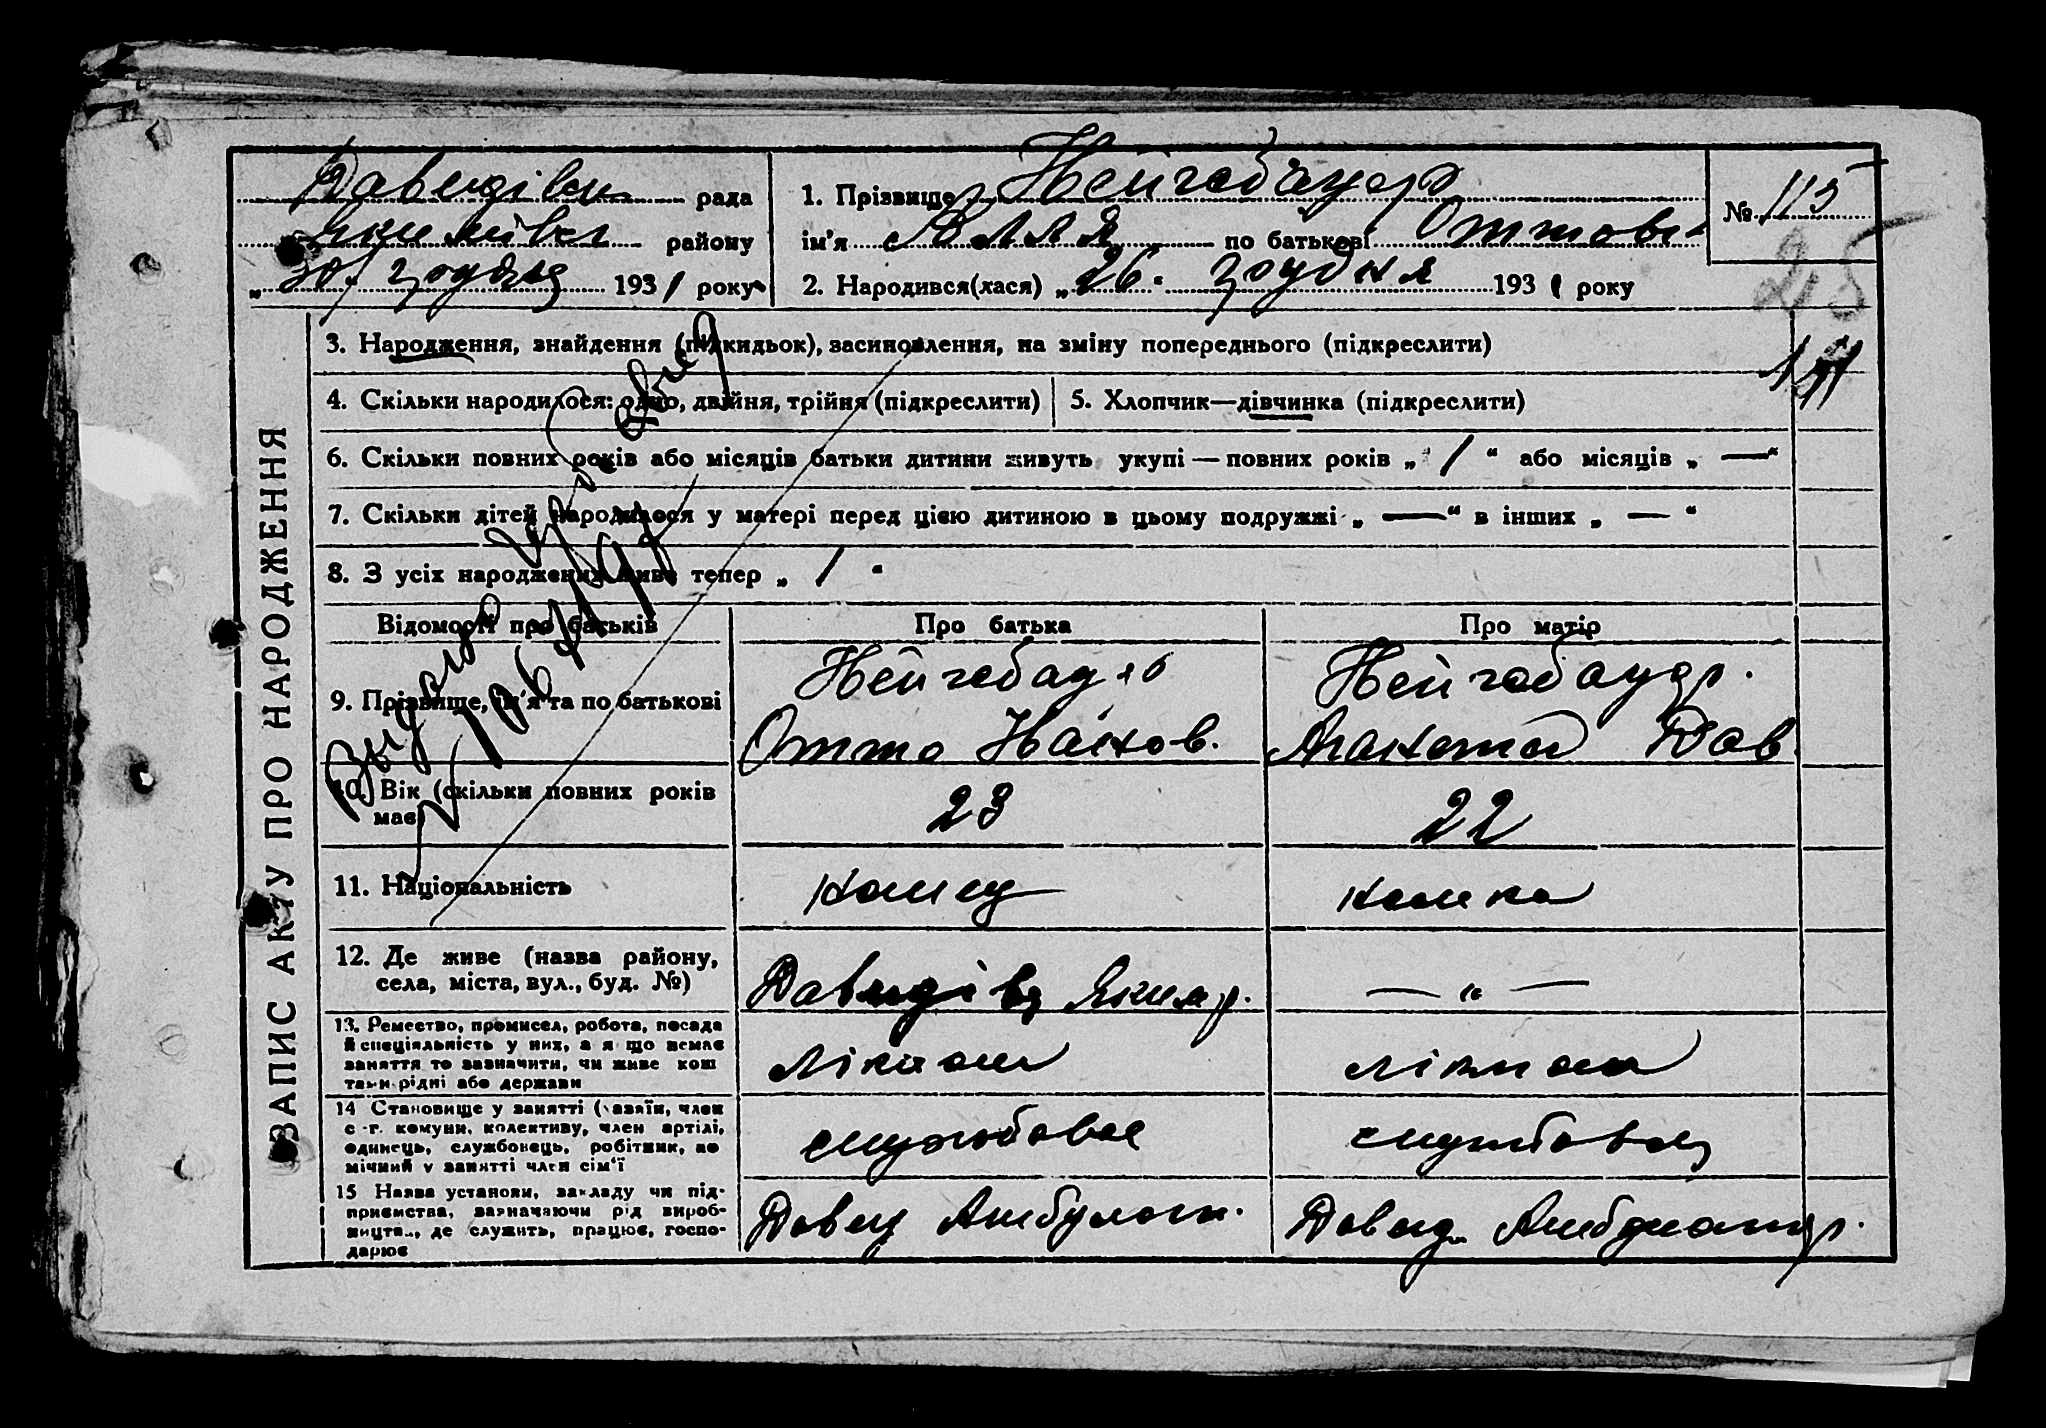 ЗАПИС АКТУ ПРО НАРОДЖЕННЯ
Давидівськ рада
Якимівськ району
„30“ грудня 1931 року
1. Прізвище Нейгебауер
ім'я Алла по батькові Оттовн
2. Народився(лася) „26“ грудня 1931 року
№ 115
25
3. Народження, знайдення (підкидьок), засиновлення, на зміну попереднього (підкреслити)
4. Скільки народилося: одно, двійня, трійня (підкреслити)
5. Хлопчик—дівчинка (підкреслити)
6. Скільки повних років або місяців батьки дитини живуть укупі — повних років „ 1 “ або місяців „ — “
7. Скільки дітей народилося у матері перед цією дитиною в цьому подружжі „ — “ в інших „ — “
8. З усіх народжених живе тепер „ 1 “
Відомості про батьків
Про батька
Про матір
9. Прізвище, ім'я та по батькові
Нейгебауер
Отто
Нейгебауер.
Дав.
10. Вік (скільки повних років має)
23
22
11. Національність
німець
німка
12. Де живе (назва району,
села, міста, вул., буд. №)
Давидівка Яким р.
— „ —
13. Ремество, промисел, робота, посада
й спеціяльність у них, а я що немає
заняття то зазначити, чи живе кош
тами рідні або держави
Лікпом
лікпом
14 Становище у занятті (хазяїн, член
с.-г. комуни, колективу, член артілі,
одинець, службовець, робітник, по
мічний у занятті член сім'ї
службовец
службовец
15 Назва установи, закладу чи під-
приємства, зазначаючи рід вироб-
ництв., де служить, працює, госпо-
дарює
Давид Амбулат.
Давид. Амбулатор.